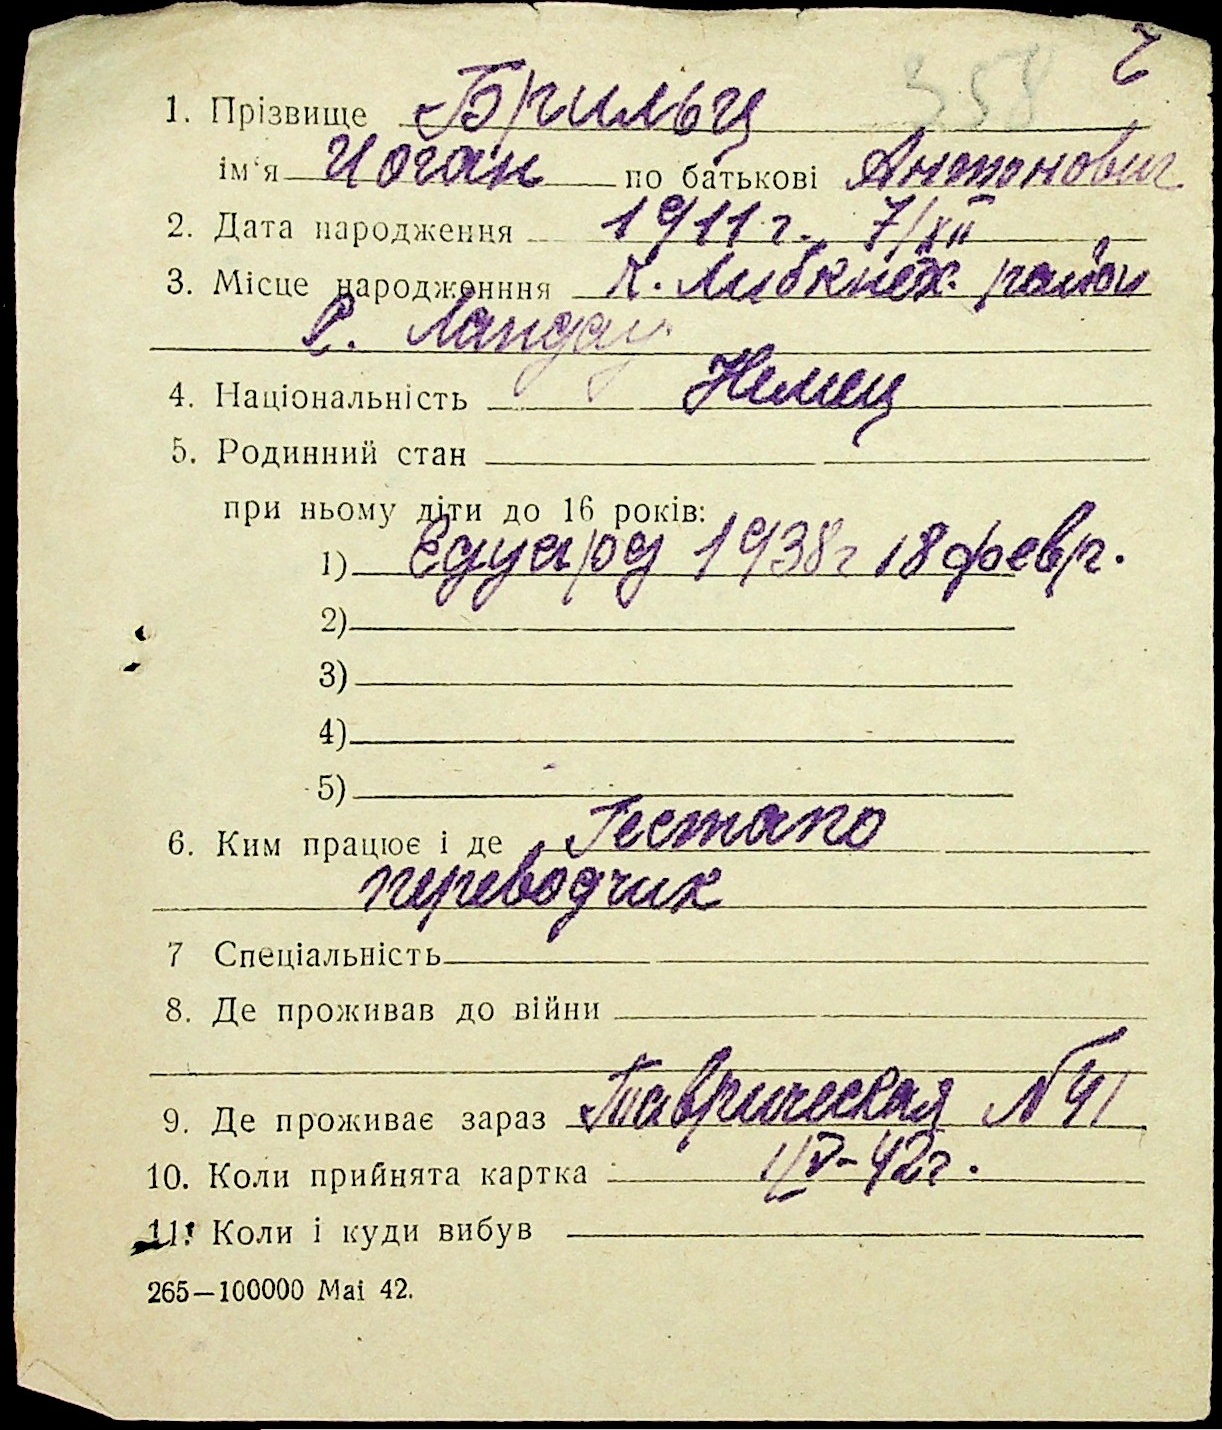 358
1. Прізвище Брильц
ім‘я Иоган по батькові Антонович
2. Дата народження 1911 г. 7/XII
3. Місце народженння К. Либкнех. район
с. Ландау
4. Національність Немец
5. Родинний стан
при ньому діти до 16 років:
1) Едуард 1938 г 18 февр.
2)
3)
4)
5)
6. Ким працює і де Гестапо
переводчик
7 Спеціальність
8. Де проживав до війни
9. Де проживає зараз Таврическая № 41
10. Коли прийнята картка IV-42 г.
11. Коли і куди вибув
265—100000 Mai 42.